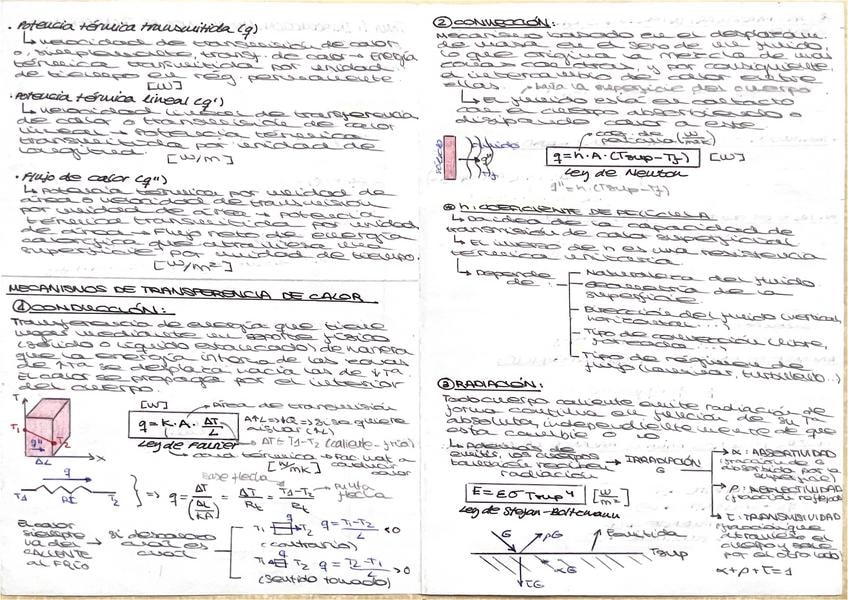 · Potencia térmica transmitida (q)
↳ velocidad de transmisión de calor
o, simplemente, transf. de calor → Energía
térmica transmitida por unidad
de tiempo en rég. permanente.
[W]
· Potencia térmica lineal (q')
↳ velocidad lineal de transferencia
de calor o transmisión de calor
lineal → Potencia térmica
transmitida por unidad de
longitud. [W/m]
· Flujo de calor (q'')
↳ Potencia térmica por unidad de
área o velocidad de transmisión
por unidad de área → Potencia
térmica transmitida por unidad
de área → Flujo neto de energía
calorífica que atraviesa una
superficie por unidad de tiempo.
[W/m²]
MECANISMOS DE TRANSFERENCIA DE CALOR
① CONDUCCIÓN:
Transferencia de energía que tiene
lugar mediante un soporte físico
(sólido o líquido estancado), de manera
que la energía interna de las zonas
de ↑Tª se desplaza hacia las de ↓Tª.
El calor se propaga por el interior
del cuerpo.
T
T1
T2
q''
ΔL
x
[W] → Área de transmisión
q = K·A· ΔT/L
Ley de Fourier
→ ΔT = T1-T2 (caliente - fría)
[W/mK]
q
T1 Rt T2
base flecha
punta flecha
⇒ q = ΔT/(ΔL/KA) = ΔT/Rt = T1-T2/Rt
El calor
siempre
va del
CALIENTE
al FRÍO
→ si desconozco
cual es
cual
T1 q T2 q = T1-T2/L <0
(contrario)
T1 q T2 q = T2-T1/L >0
(Sentido tomado)
② CONVECCIÓN:
Mecanismo basado en el desplazam.
de masa en el seno de un fluido,
lo que origina la mezcla de
zonas y por consiguiente,
el intercambio de calor entre
ellas.
la superficie del cuerpo
↳ El fluido está en contacto
con el cuerpo absorbiendo o
disipando calor a este
fluido
q''
Tf
coef. de película (W/m²K)
q = h·A·(Tsup-Tf) [W]
Ley de Newton
q'' = h·(Tsup-Tf)
h: COEFICIENTE DE PELÍCULA
↳ Da idea de la capacidad de
transmisión de calor superficial
↳ El inverso de h es una resistencia
térmica unitaria
↳ Depende de:
Naturaleza del fluido
Geometría de la superficie
Dirección del fluido (vertical, horizontal...)
Tipo de convección (libre, forzada...)
Tipo de régimen de flujo (laminar, turbulento...)
③ RADIACIÓN:
Todo cuerpo caliente emite radiación de
forma continua en función de su Tª
absoluta, independientemente de que
esta cambie o no
↳ Además de
emitir, los cuerpos
también reciben
radiación
→ IRRADIACIÓN G
α: ABSORTIVIDAD
(fracción de G
absorbida por la
superficie)
ρ: REFLECTIVIDAD
(fracción reflejada)
τ: TRANSMISIVIDAD
(fracción que
atraviesa el
cuerpo y sale
por el otro lado)
α+ρ+τ=1
E = εσ Tsup⁴ [W/m²]
Ley de Stefan-Boltzmann
G
ρG
Eemitida
Tsup
αG
τG